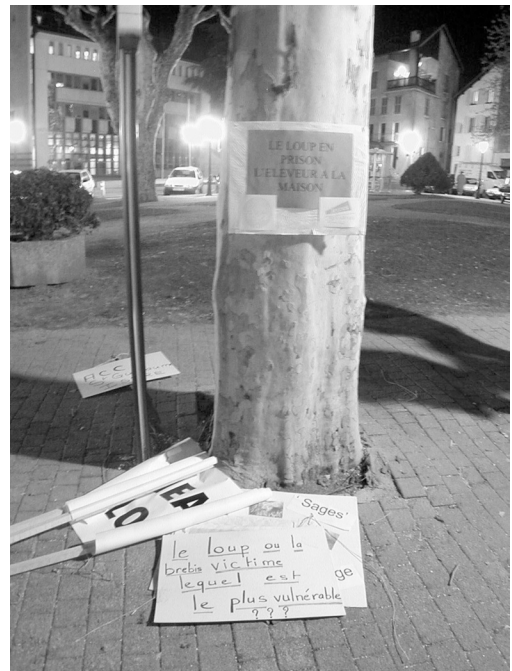 LE LOUP EN
PRISON
L'ELEVEUR A LA
MAISON
ACC
LO
ER
'Sages'
ge
le loup ou la
brebis victime
lequel est
le plus vulnérable
???